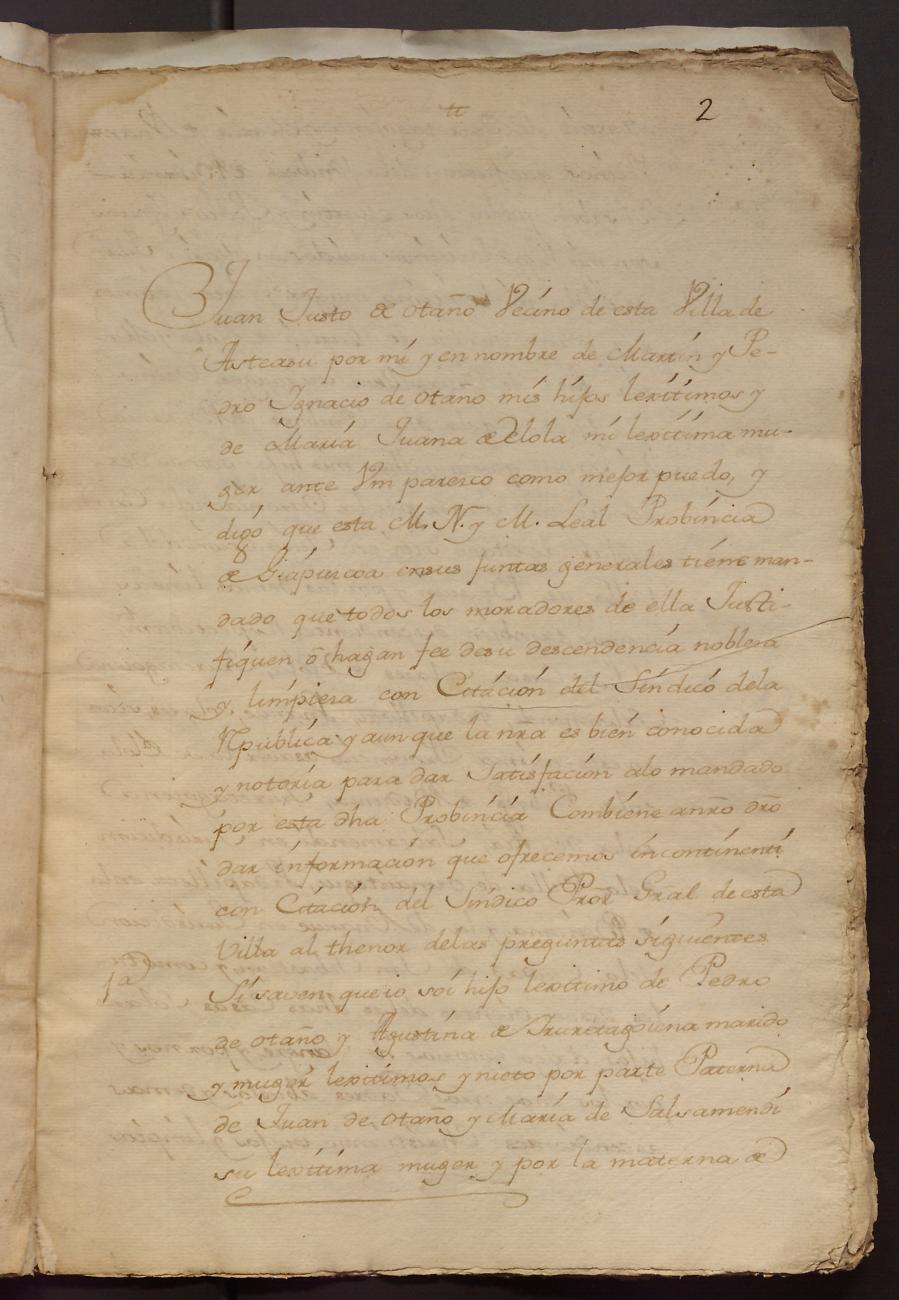 tt
2
Juan Justo de otaño Vecino de esta Villa de
Asteasu por mi y en nombre de Martin y Pe-
dro Ignacio de otaño mis hijos lexitimos y
de Maria Juana de Elola mi lexitima mu-
ger ante Vm paresco como mejor puedo, y
digo que esta M. N. y M. Leal Probincia
de Guipuscoa en sus Juntas generales tiene man-
dado que todos los moradores de ella Justi-
fiquen ō hagan fee de su descendencia noblesa
y limpiesa con Citación del Síndico dela
Rpública y aunque la nrā es bien conocida
y notoria para dar satisfacion alo mandado
por esta dhā Probincia Combiene anrō drō
dar informacion que ofrecemos incontinenti
con Citación del Síndico Prōr Gral de esta
Villa al thenor delas preguntas siguientes
1ª Si saven que io soi hijo lexitimo de Pedro
de otaño y Agustina de Yruretagoiena marido
y muger lexitimos y nieto por parte Paterna
de Juan de otaño y Maria de Salsamendi
su lexitima muger y por la materna de